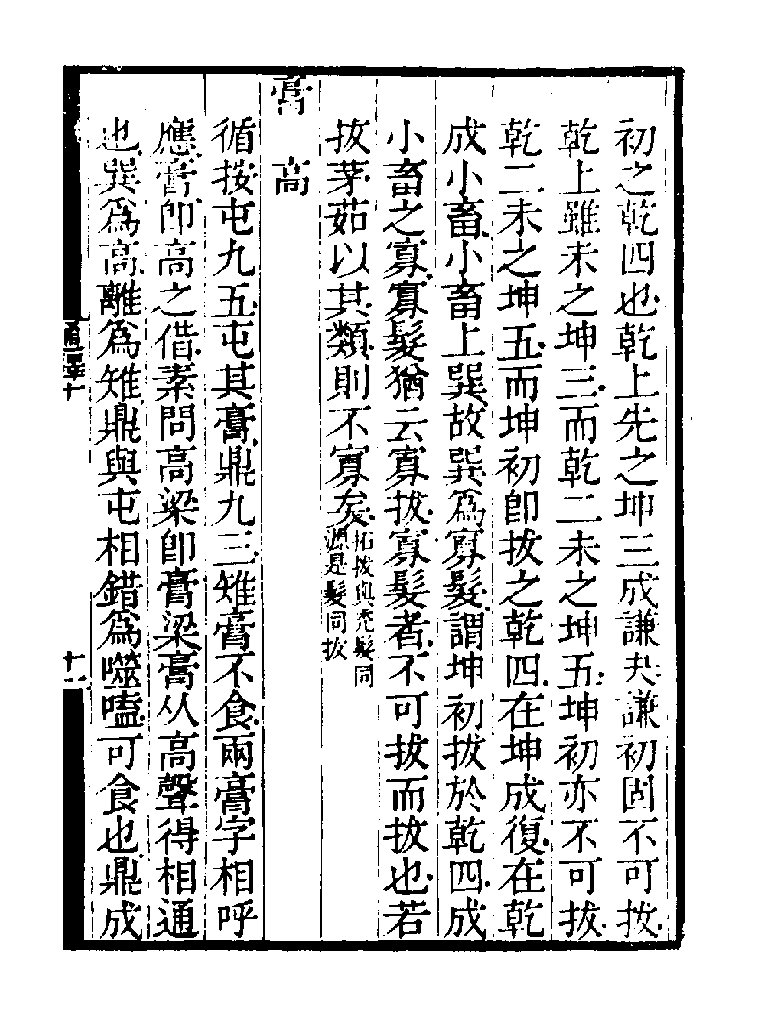 初之乾四也乾上先之坤三成謙夬謙初固不可拔
乾上雖未之坤三而乾二未之坤五坤初亦不可拔
乾二未之坤五而坤初卽拔之乾四在坤成復在乾
成小畜小畜上巽故巽爲寡髮謂坤初拔於乾四成
小畜之寡寡髮猶云寡拔寡髮者不可拔而拔也若
拔茅茹以其類則不寡矣
拓拔與禿髮同
源是髮同拔
膏 高
循按屯九五屯其膏鼎九三雉膏不食兩膏字相呼
應膏卽高之借素問高粱卽膏粱膏从高聲得相通
也巽爲高離爲雉鼎與屯相錯爲噬嗑可食也鼎成
通釋十
十一